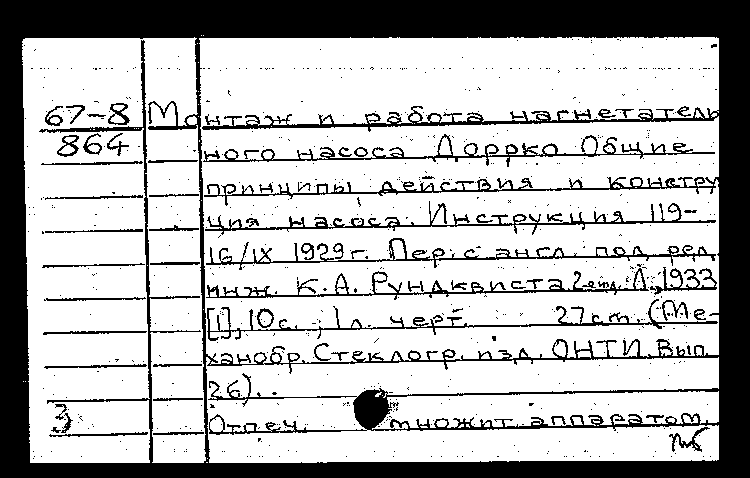 67-8 Монтаж и работа нагнетатель
864 ного насоса Доррко Общие
принципы действия и констру
ция насоса. Инструкция 119-
16/IX 1929г. Пер. с англ. под ред.
инж. К.А. Рундквиста. Л., 1933
[1], 10с.; 1л. черт. 27см. (Ме-
ханобр. Стеклогр. изд. ОНТИ. Вып.
26)..
3 Отпеч. множит аппаратом.